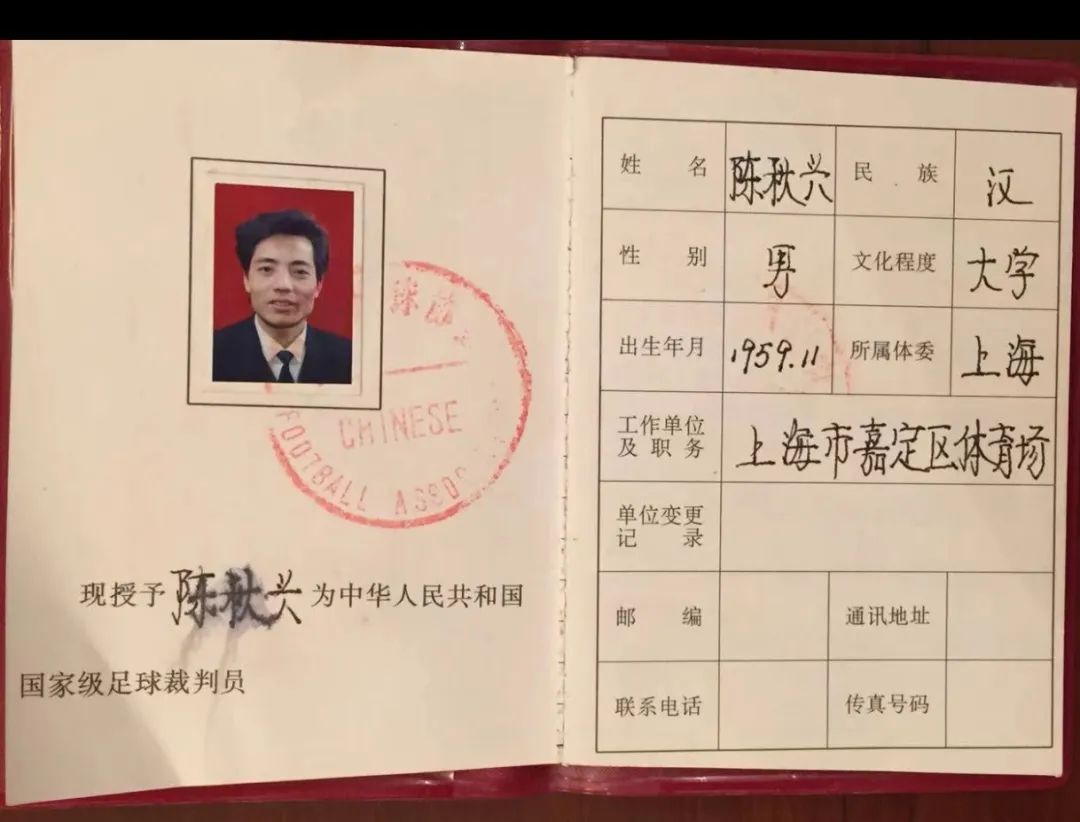 球协
CHINESE
FOOTBALL ASSOC
现授予 陈秋兴 为中华人民共和国
国家级足球裁判员
姓名 陈秋兴 民族 汉
性别 男 文化程度 大学
出生年月 1959.11 所属体委 上海
工作单位 上海市嘉定区体育场
及职务
单位变更
记录
邮编 通讯地址
联系电话 传真号码